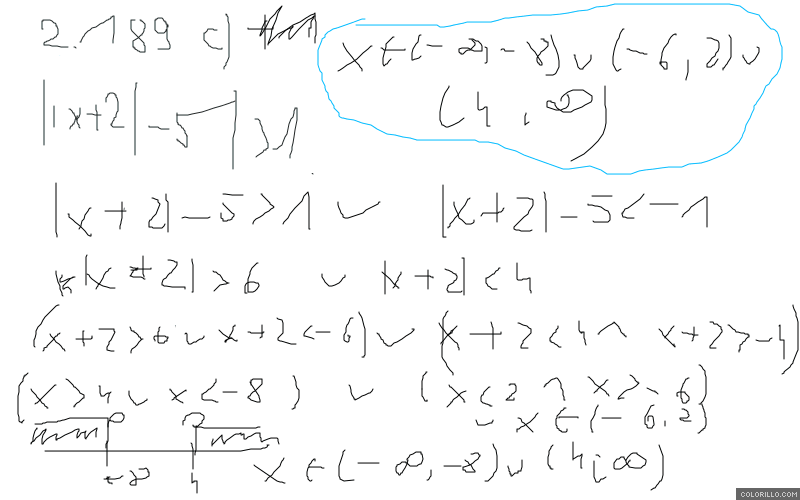 2.189 c)
x ∈ (-∞, -8) ∪ (-6, 2) ∪
(4, ∞)
||x+2|-5|>1
|x+2|-5>1 ∨ |x+2|-5<-1
|x+2|>6 ∨ |x+2|<4
(x+2>6 ∨ x+2<-6) ∨ (x+2<4 ∧ x+2>-4)
(x>4 ∨ x<-8) ∨ (x<2 ∧ x>-6)
∪ x ∈ (-6, 2)
-8 4
x ∈ (-∞, -8) ∪ (4; ∞)
COLORILLO.COM